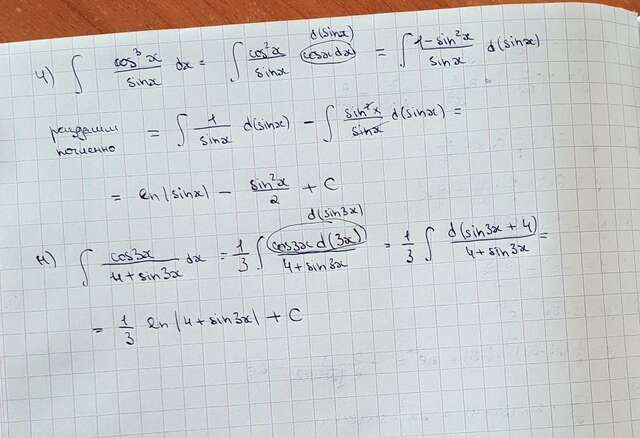 ч) ∫ cos³x/sinx dx = ∫ cos²x/sinx d(sinx) cosx dx = ∫ 1-sin²x/sinx d(sinx)
почленно = ∫ 1/sinx d(sinx) - ∫ sin²x/sinx d(sinx) =
= ln|sinx| - sin²x/2 + C
∫ cos3x/4+sin3x dx = 1/3 ∫ d(sin3x) cos3x d(3x)/4+sin3x = 1/3 ∫ d(sin3x+4)/4+sin3x =
= 1/3 ln|4+sin3x| + C